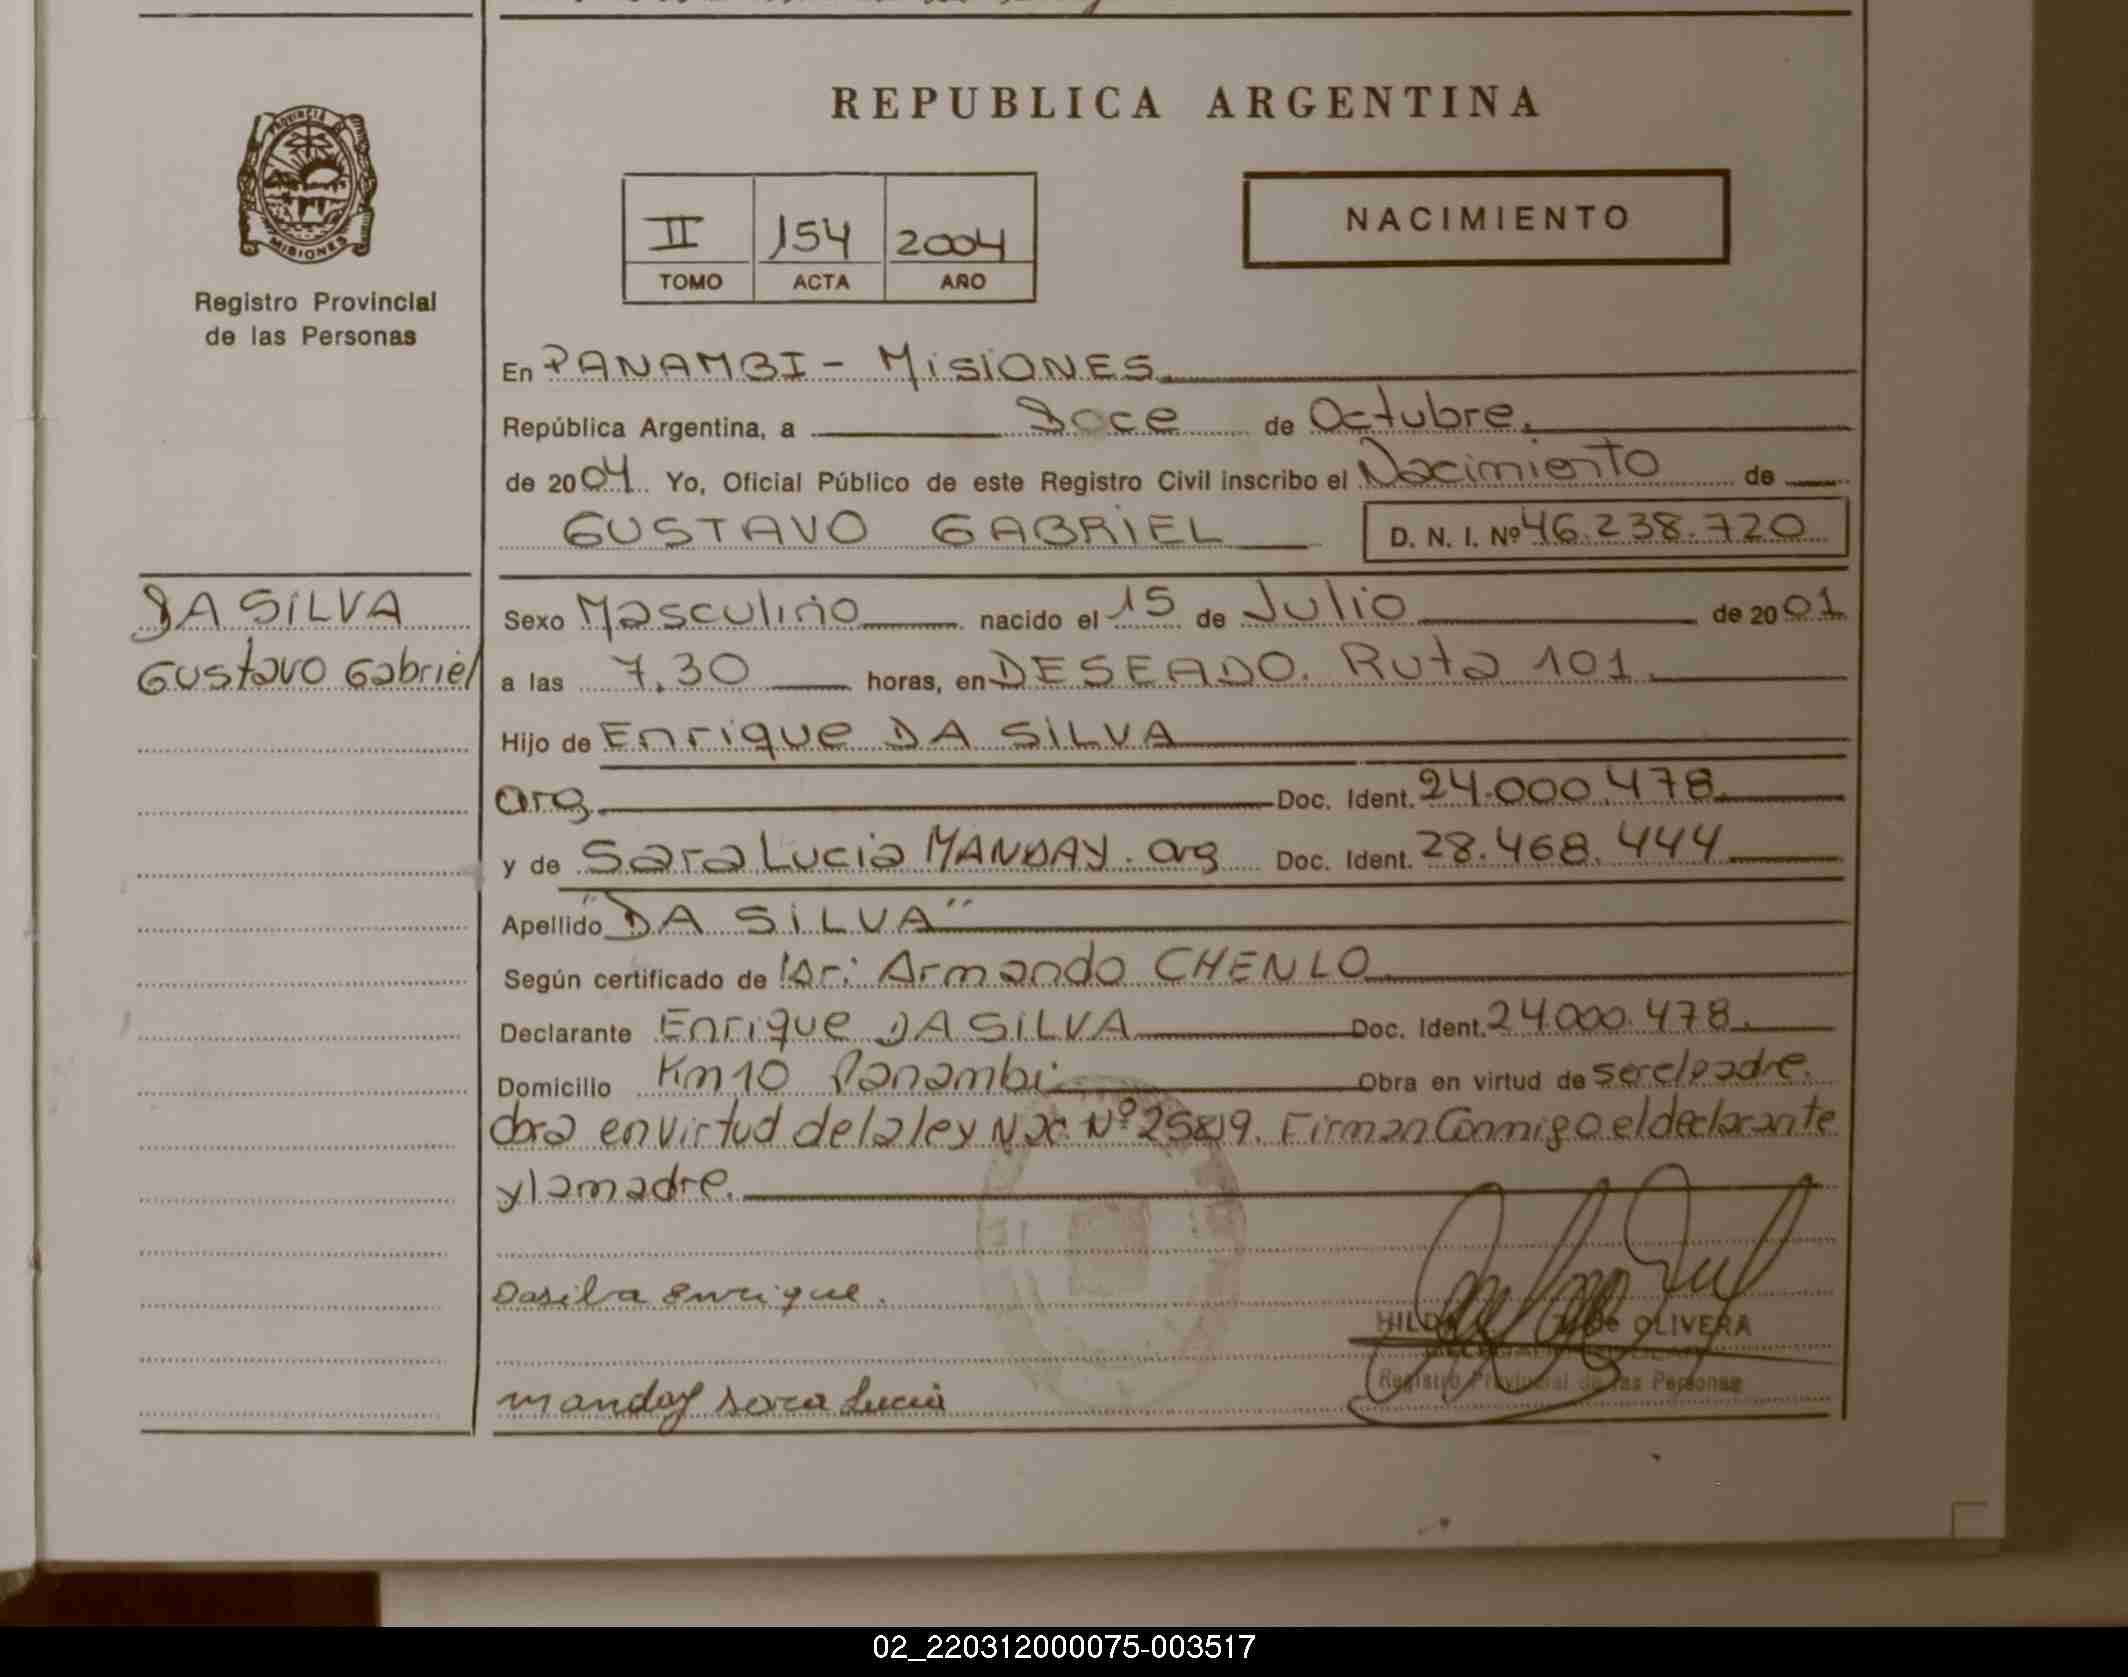 PROVINCIA DE
MISIONES
Registro Provincial
de las Personas
REPUBLICA ARGENTINA
II 154 2004
TOMO ACTA AÑO
NACIMIENTO
En PANAMBI - MISIONES
República Argentina, a Doce de Octubre.
de 2004. Yo, Oficial Público de este Registro Civil inscribo el Nacimiento de
GUSTAVO GABRIEL D. N. I. Nº 46.238.720
DA SILVA
Gustavo Gabriel
Sexo Masculino nacido el 15 de Julio de 2001
a las 7.30 horas, en DESEADO. Ruta 101
Hijo de Enrique DA SILVA
arg. Doc. Ident. 24.000.478.
y de Sara Lucia MANDAY. arg Doc. Ident. 28.468.444
Apellido "DA SILVA"
Según certificado de Armando CHENLO
Declarante Enrique DA SILVA Doc. Ident. 24.000.478.
Domicilio Km 10 Panambi Obra en virtud de ser el padre.
obra en virtud de la ley Nac. Nº 25819. Firman Conmigo el declarante
y la madre.
Dasilva enrique.
HILDA de OLIVERA
Registro Provincial de las Personas
manday sara Lucia
02_220312000075-003517